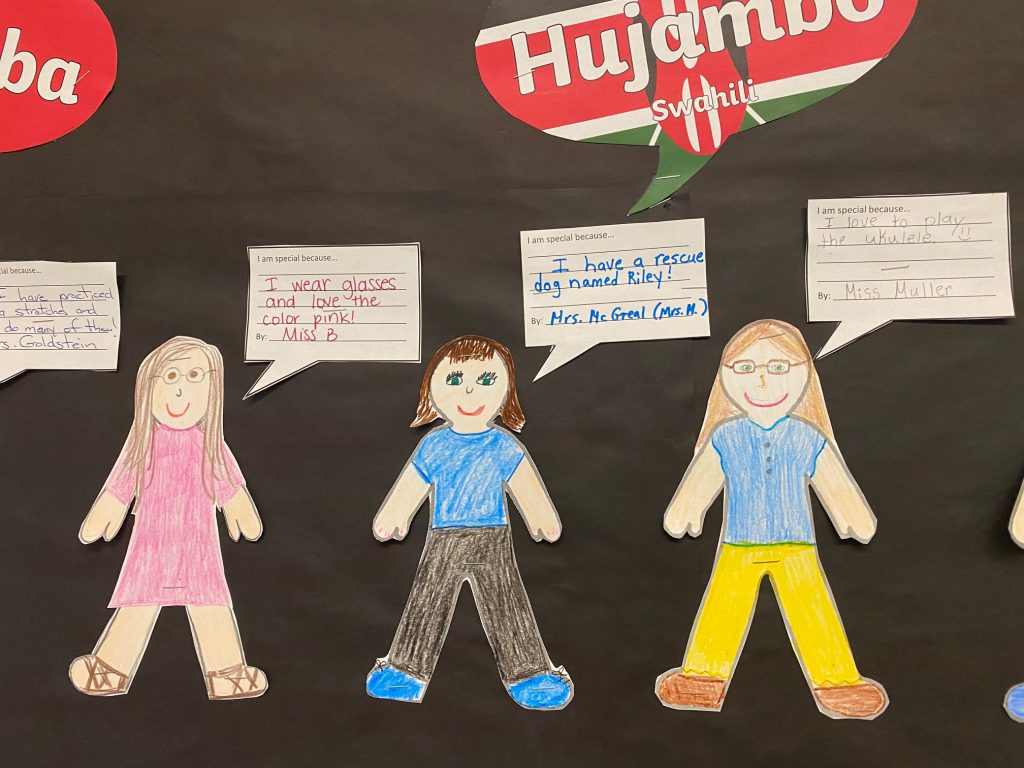 ba
Hujambo
Swahili
ial because...
I have practiced
stretches and
do many of them!
rs. Goldstein
I am special because...
I wear glasses
and love the
color pink!
By: Miss B
I am special because...
I have a rescue
dog named Riley!
By: Mrs. McGreal (Mrs. M.)
I am special because...
I love to play
the ukulele.
By: Miss Muller